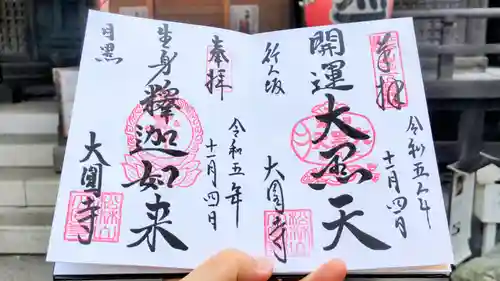 奉拝
開運大黒天
行人坂
大圓寺
令和五年
十一月四日
奉拝
生身釋迦如来
目黒
大圓寺
令和五年
十一月四日